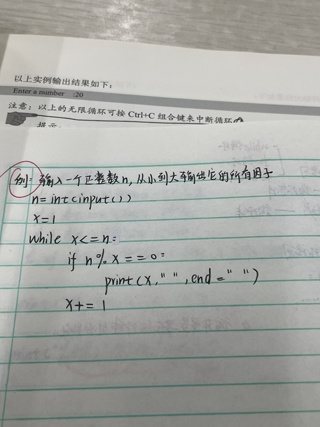 以上实例输出结果如下:
Enter a number :20
注意: 以上的无限循环可按 Ctrl+C 组合键来中断循环。
提示
例: 输入一个正整数n,从小到大输出它的所有因子
n=int(input())
x=1
while x<=n:
if n%x==0:
print(x," ",end=" ")
x+=1